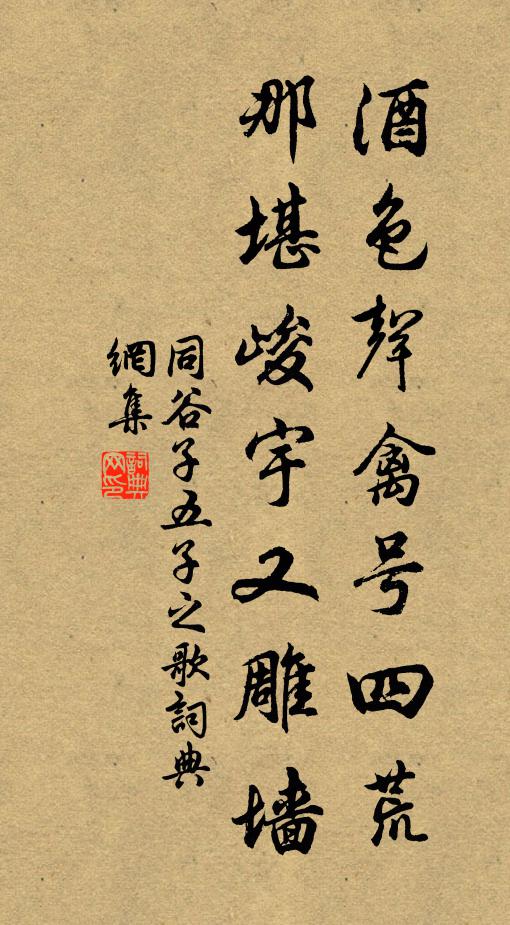 酒色聲禽号四荒
那堪峻宇又雕墙
同谷子五子之歌詞典
網集
詞典
网印